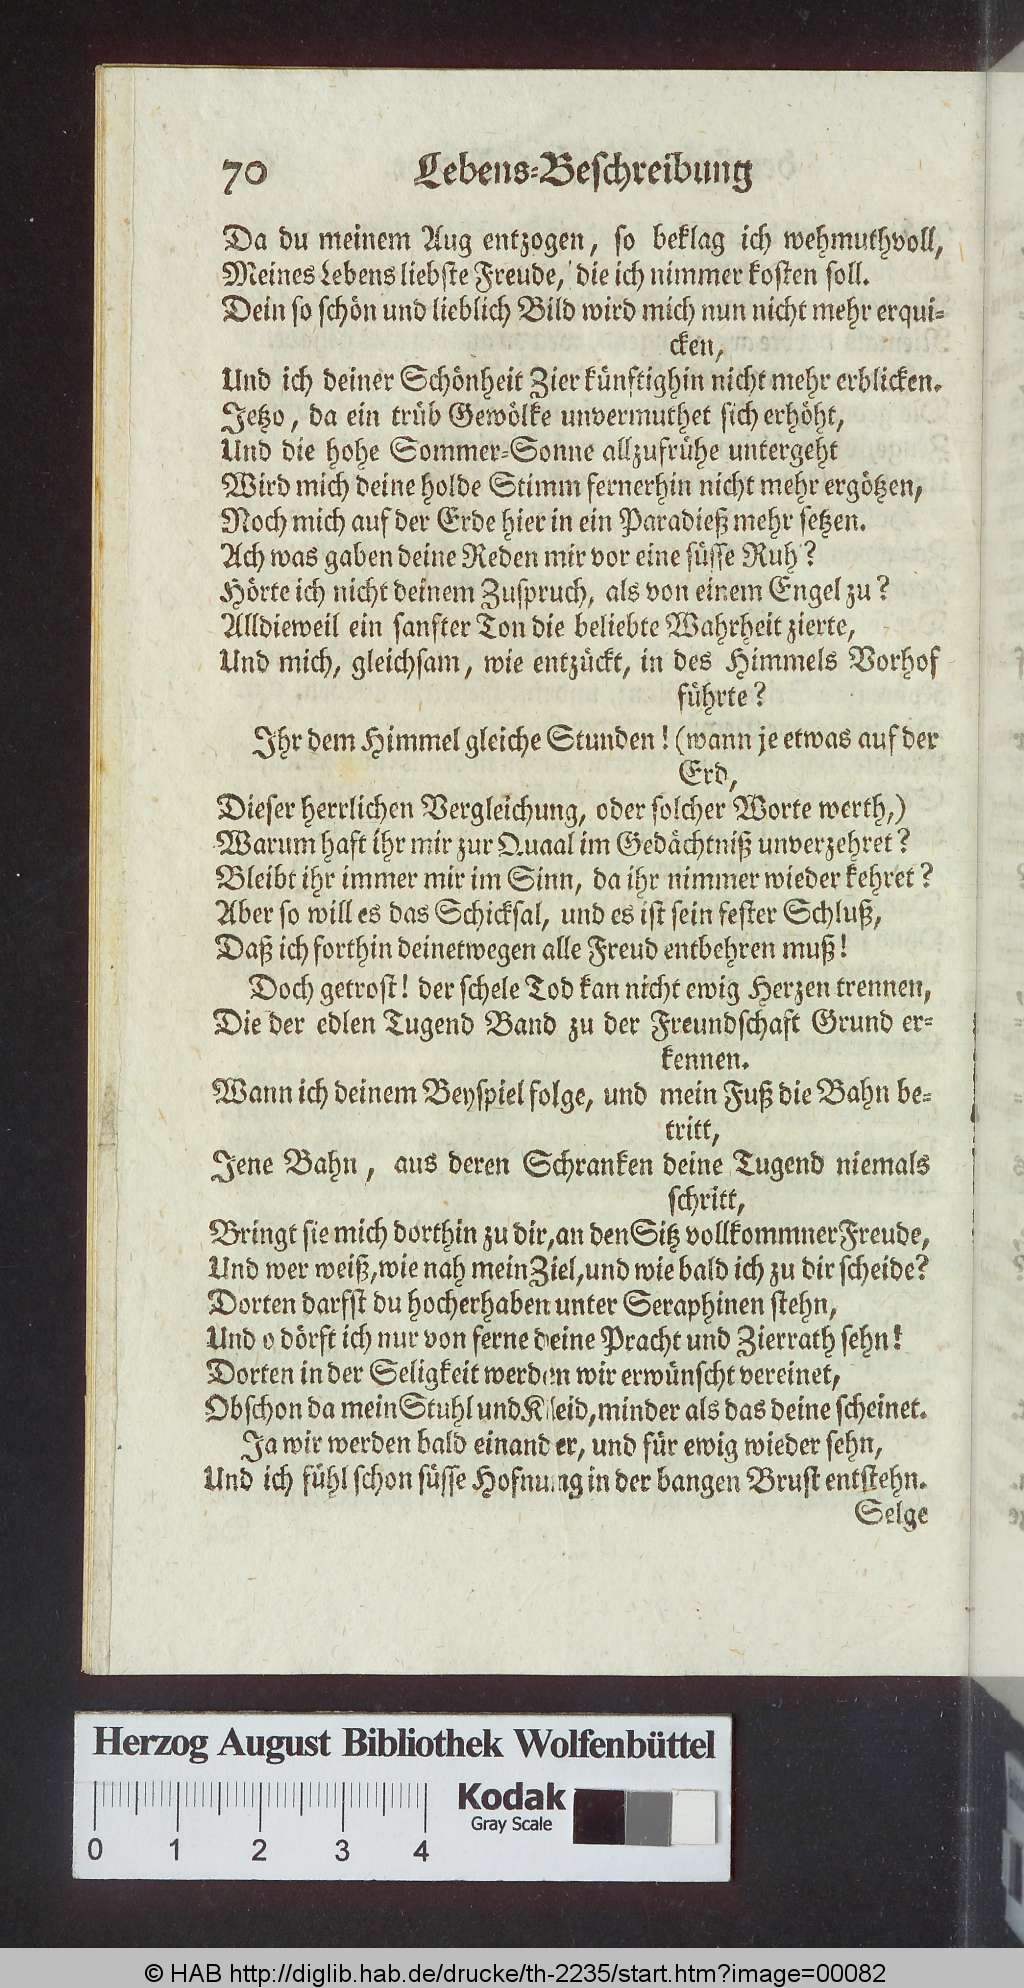 70 Lebens-Beschreibung
Da du meinem Aug entzogen, so beklag ich wehmuthvoll,
Meines Lebens liebste Freude, die ich nimmer kosten soll.
Dein so schön und lieblich Bild wird mich nun nicht mehr erqui-
cken,
Und ich deiner Schönheit Zier künftighin nicht mehr erblicken.
Jetzo, da ein trüb Gewölke unvermuthet sich erhöht,
Und die hohe Sommer-Sonne allzufrühe untergeht
Wird mich deine holde Stimm fernerhin nicht mehr ergötzen,
Noch mich auf der Erde hier in ein Paradieß mehr setzen.
Ach was gaben deine Reden mir vor eine süsse Ruh?
Hörte ich nicht deinem Zuspruch, als von einem Engel zu?
Alldieweil ein sanfter Ton die beliebte Wahrheit zierte,
Und mich, gleichsam, wie entzückt, in des Himmels Vorhof
führte?
Ihr dem Himmel gleiche Stunden! (wann je etwas auf der
Erd,
Dieser herrlichen Vergleichung, oder solcher Worte werth,)
Warum haft ihr mir zur Quaal im Gedächtniß unverzehret?
Bleibt ihr immer mir im Sinn, da ihr nimmer wieder kehret?
Aber so will es das Schicksal, und es ist sein fester Schluß,
Daß ich forthin deinetwegen alle Freud entbehren muß!
Doch getrost! der schele Tod kan nicht ewig Herzen trennen,
Die der edlen Tugend Band zu der Freundschaft Grund er-
kennen.
Wann ich deinem Beyspiel folge, und mein Fuß die Bahn be-
tritt,
Jene Bahn, aus deren Schranken deine Tugend niemals
schritt,
Bringt sie mich dorthin zu dir, an den Sitz vollkommner Freude,
Und wer weiß, wie nah mein Ziel, und wie bald ich zu dir scheide?
Dorten darfst du hocherhaben unter Seraphinen stehn,
Und o dörft ich nur von ferne deine Pracht und Zierrath sehn!
Dorten in der Seligkeit werden wir erwünscht vereinet,
Obschon da mein Stuhl und Kleid, minder als das deine scheinet.
Ja wir werden bald einander, und für ewig wieder sehn,
Und ich fühl schon süsse Hofnung in der bangen Brust entstehn.
Selge
Herzog August Bibliothek Wolfenbüttel
Kodak
Gray Scale
0 1 2 3 4
© HAB http://diglib.hab.de/drucke/th-2235/start.htm?image=00082